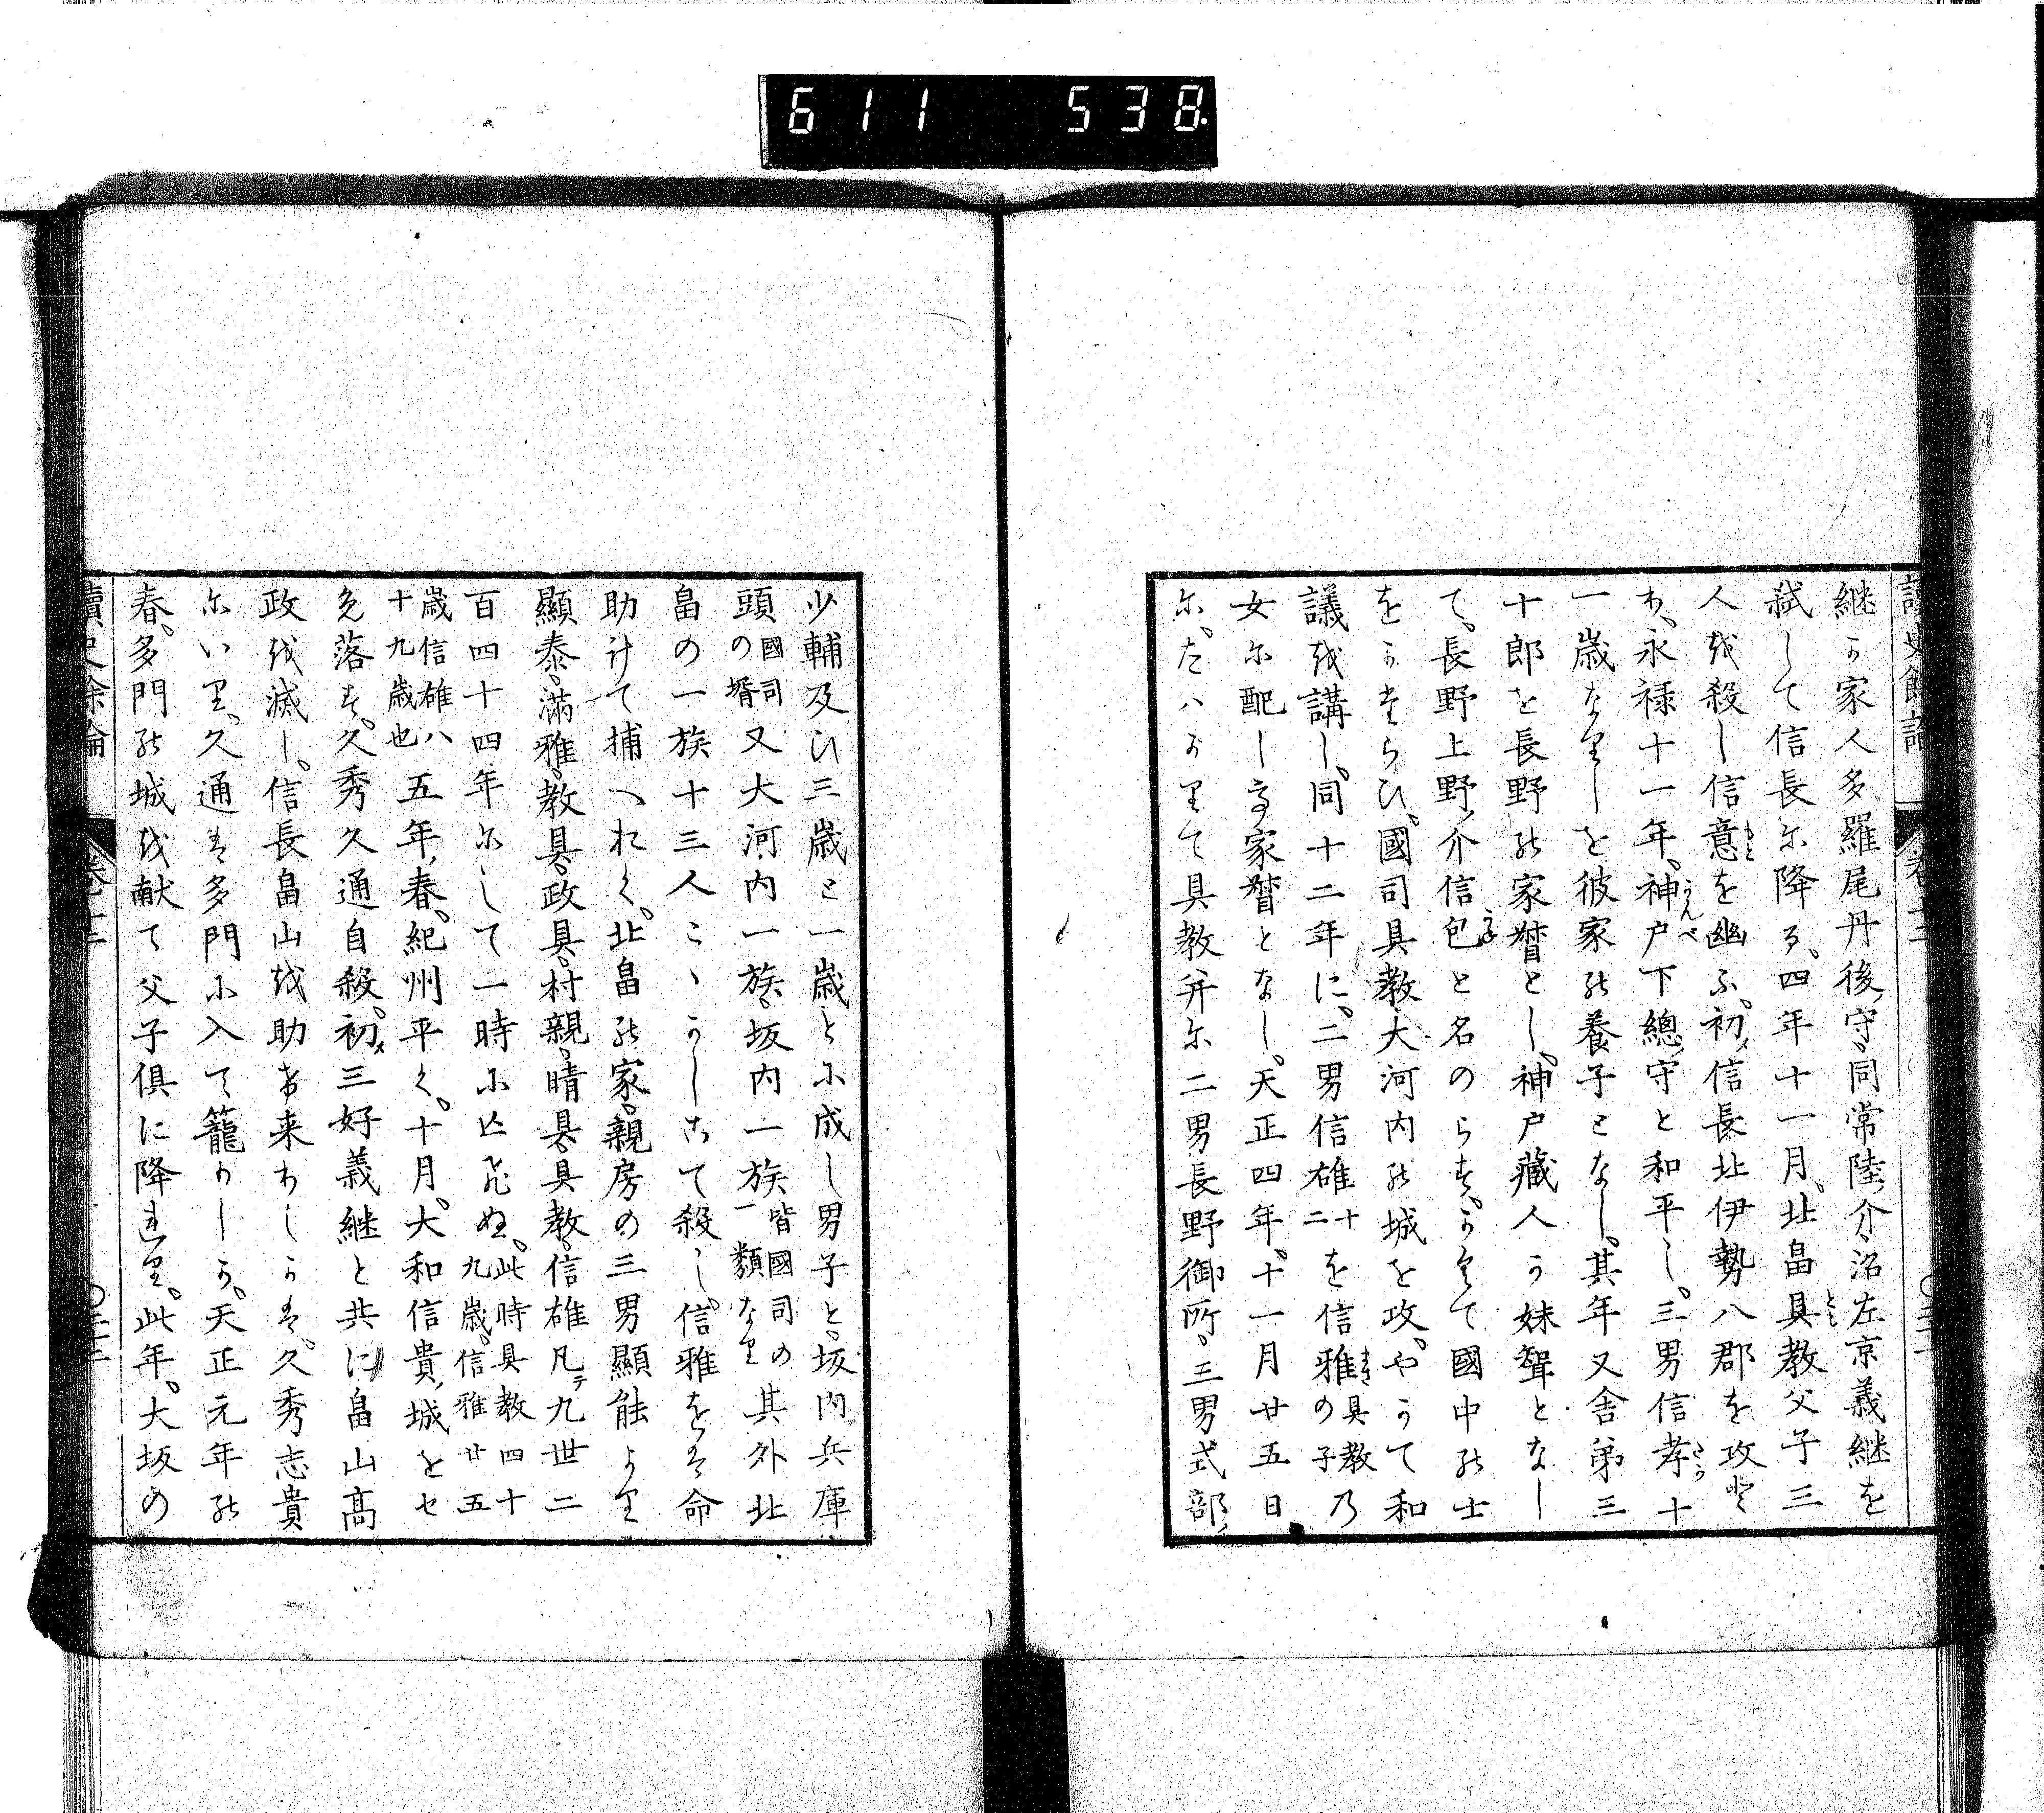 611 538
讀史餘論 卷十二
継か家人多羅尾丹後守同常陸介沼左京義継を
弑して信長に降る四年十一月北畠具教父子三
人を殺し信意を幽ふ初メ信長北伊勢八郡を攻と
れ永禄十一年神戸下總守と和平し三男信孝十
一歳なりしを彼家の養子となし其年又舎弟三
十郎を長野の家督とし神戸藏人か妹聟となし
て長野上野介信包と名のらすかくて國中の士
をかたらひ國司具教大河内の城を攻やかて和
議を講し同十二年に二男信雄十二を信雅具教乃の子
女に配し家督となし天正四年十一月廿五日
に たはかりて具教并に二男長野御所三男式部
少輔及ひ三歳と一歳とに成し男子と坂内兵庫
頭國司の壻又大河内一族坂内一族皆國司の一類なり其外北
畠の一族十三人こゝかしこて殺し信雅をは命
助けて捕へおく北畠の家親房の三男顯能より
顯泰満雅教具政具村親晴具具教信雄凡テ九世二
百四十四年にして一時に亡ひぬ此時具教四十九歳信雅廿五
歳信雄八十九歳也五年春紀州平く十月大和信貴城をせ
め落す久秀久通自殺初メ三好義継と共に畠山高
政を滅し信長畠山を助け来りしかは久秀志貴
にいり久通は多門に入て籠りしか天正元年の
春多門の城を献て父子倶に降れり此年大坂の
讀史餘論 卷十二